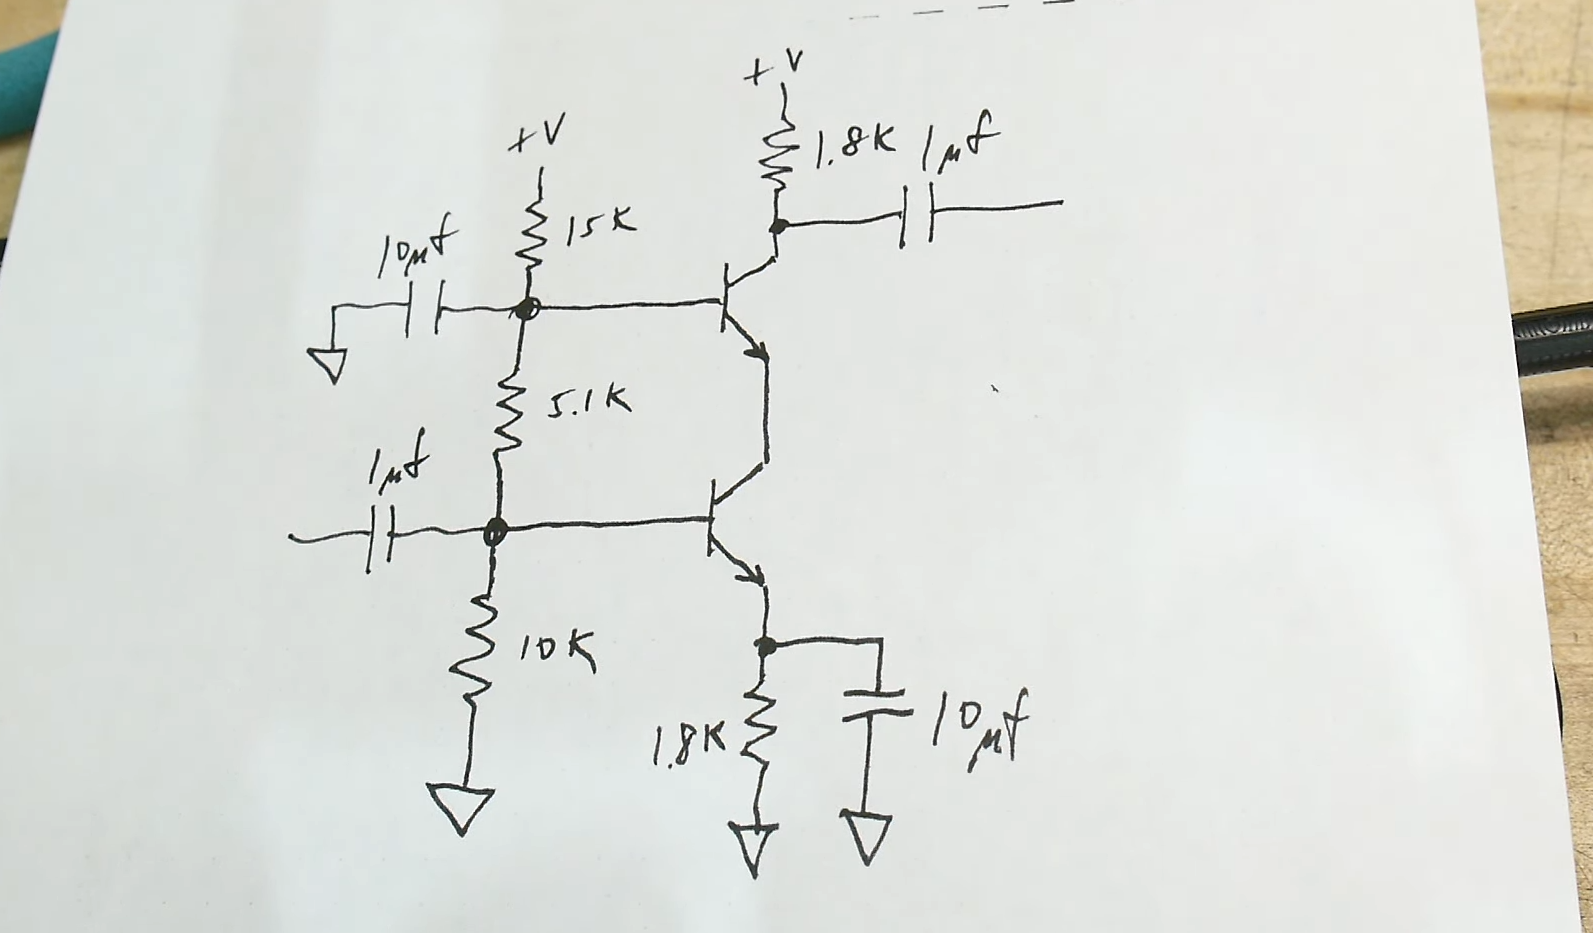 +V
+V
1.8K
1µf
15K
10µf
5.1K
1µf
10K
1.8K
10µf